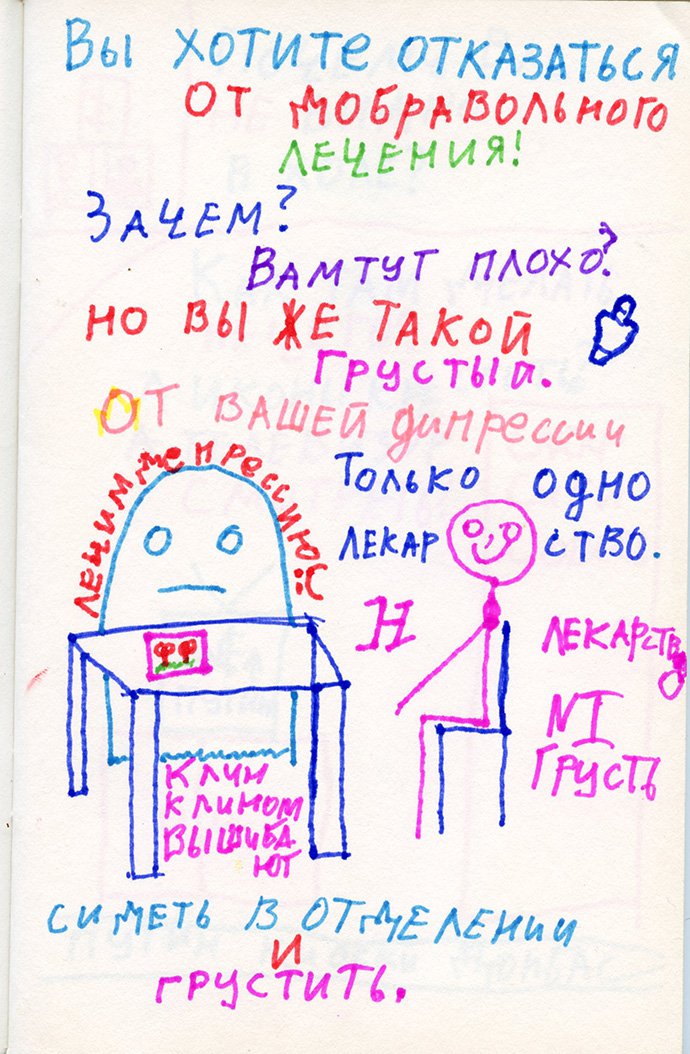 Вы ХОТИТЕ ОТКАЗАТЬСЯ
ОТ ДОБРАВОЛЬНОГО
ЛЕЧЕНИЯ!
ЗАЧЕМ?
ВАМТУТ ПЛОХО?
НО ВЫ ЖЕ ТАКОЙ
ГРУСТЫЙ.
ОТ ВАШЕЙ дипрессии
ТОЛЬКО ОДНО
ЛЕКАРСТВО.
ЛЕЧИМ ДЕПРЕССИЮ :C
Н
ЛЕКАРСТВО
N1
ГРУСТЬ
КЛИН
КЛИНОМ
ВЫШИБА
ЮТ
СИДЕТЬ В ОТДЕЛЕНИИ
И
ГРУСТИТЬ.